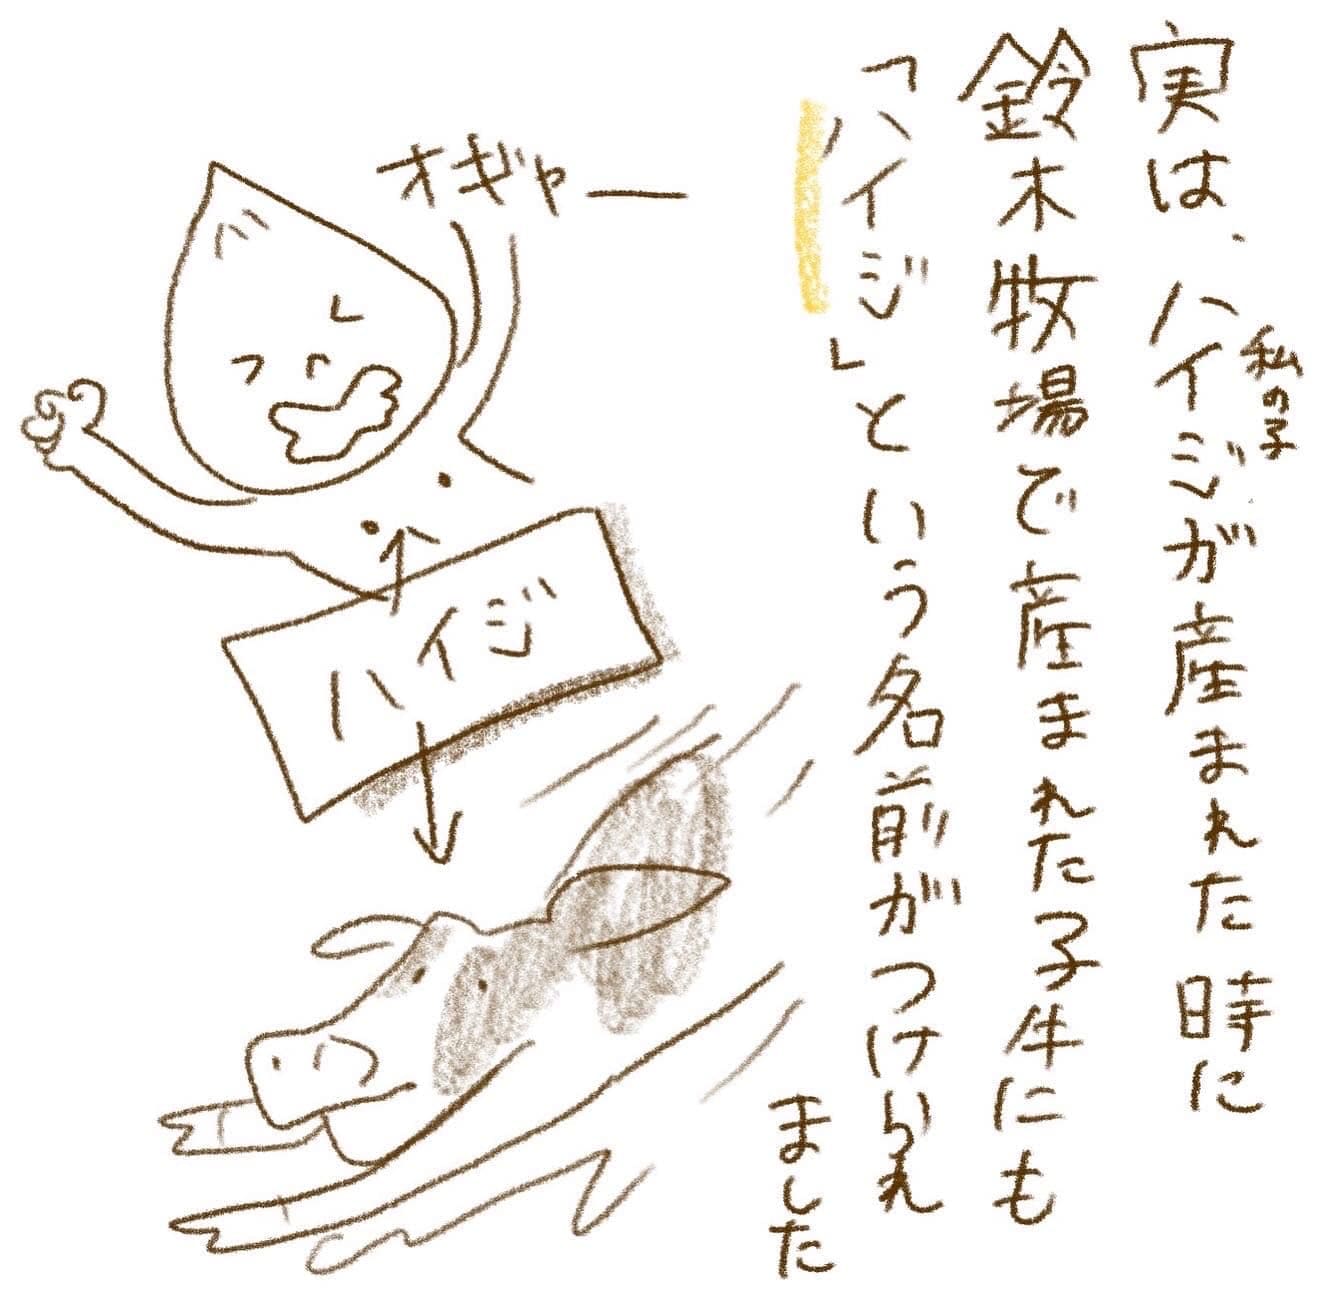 実は、ハイジが産まれた時に
私の子
鈴木牧場で産まれた子牛にも
「ハイジ」という名前がつけられ
ました
オギャー
ハイジ